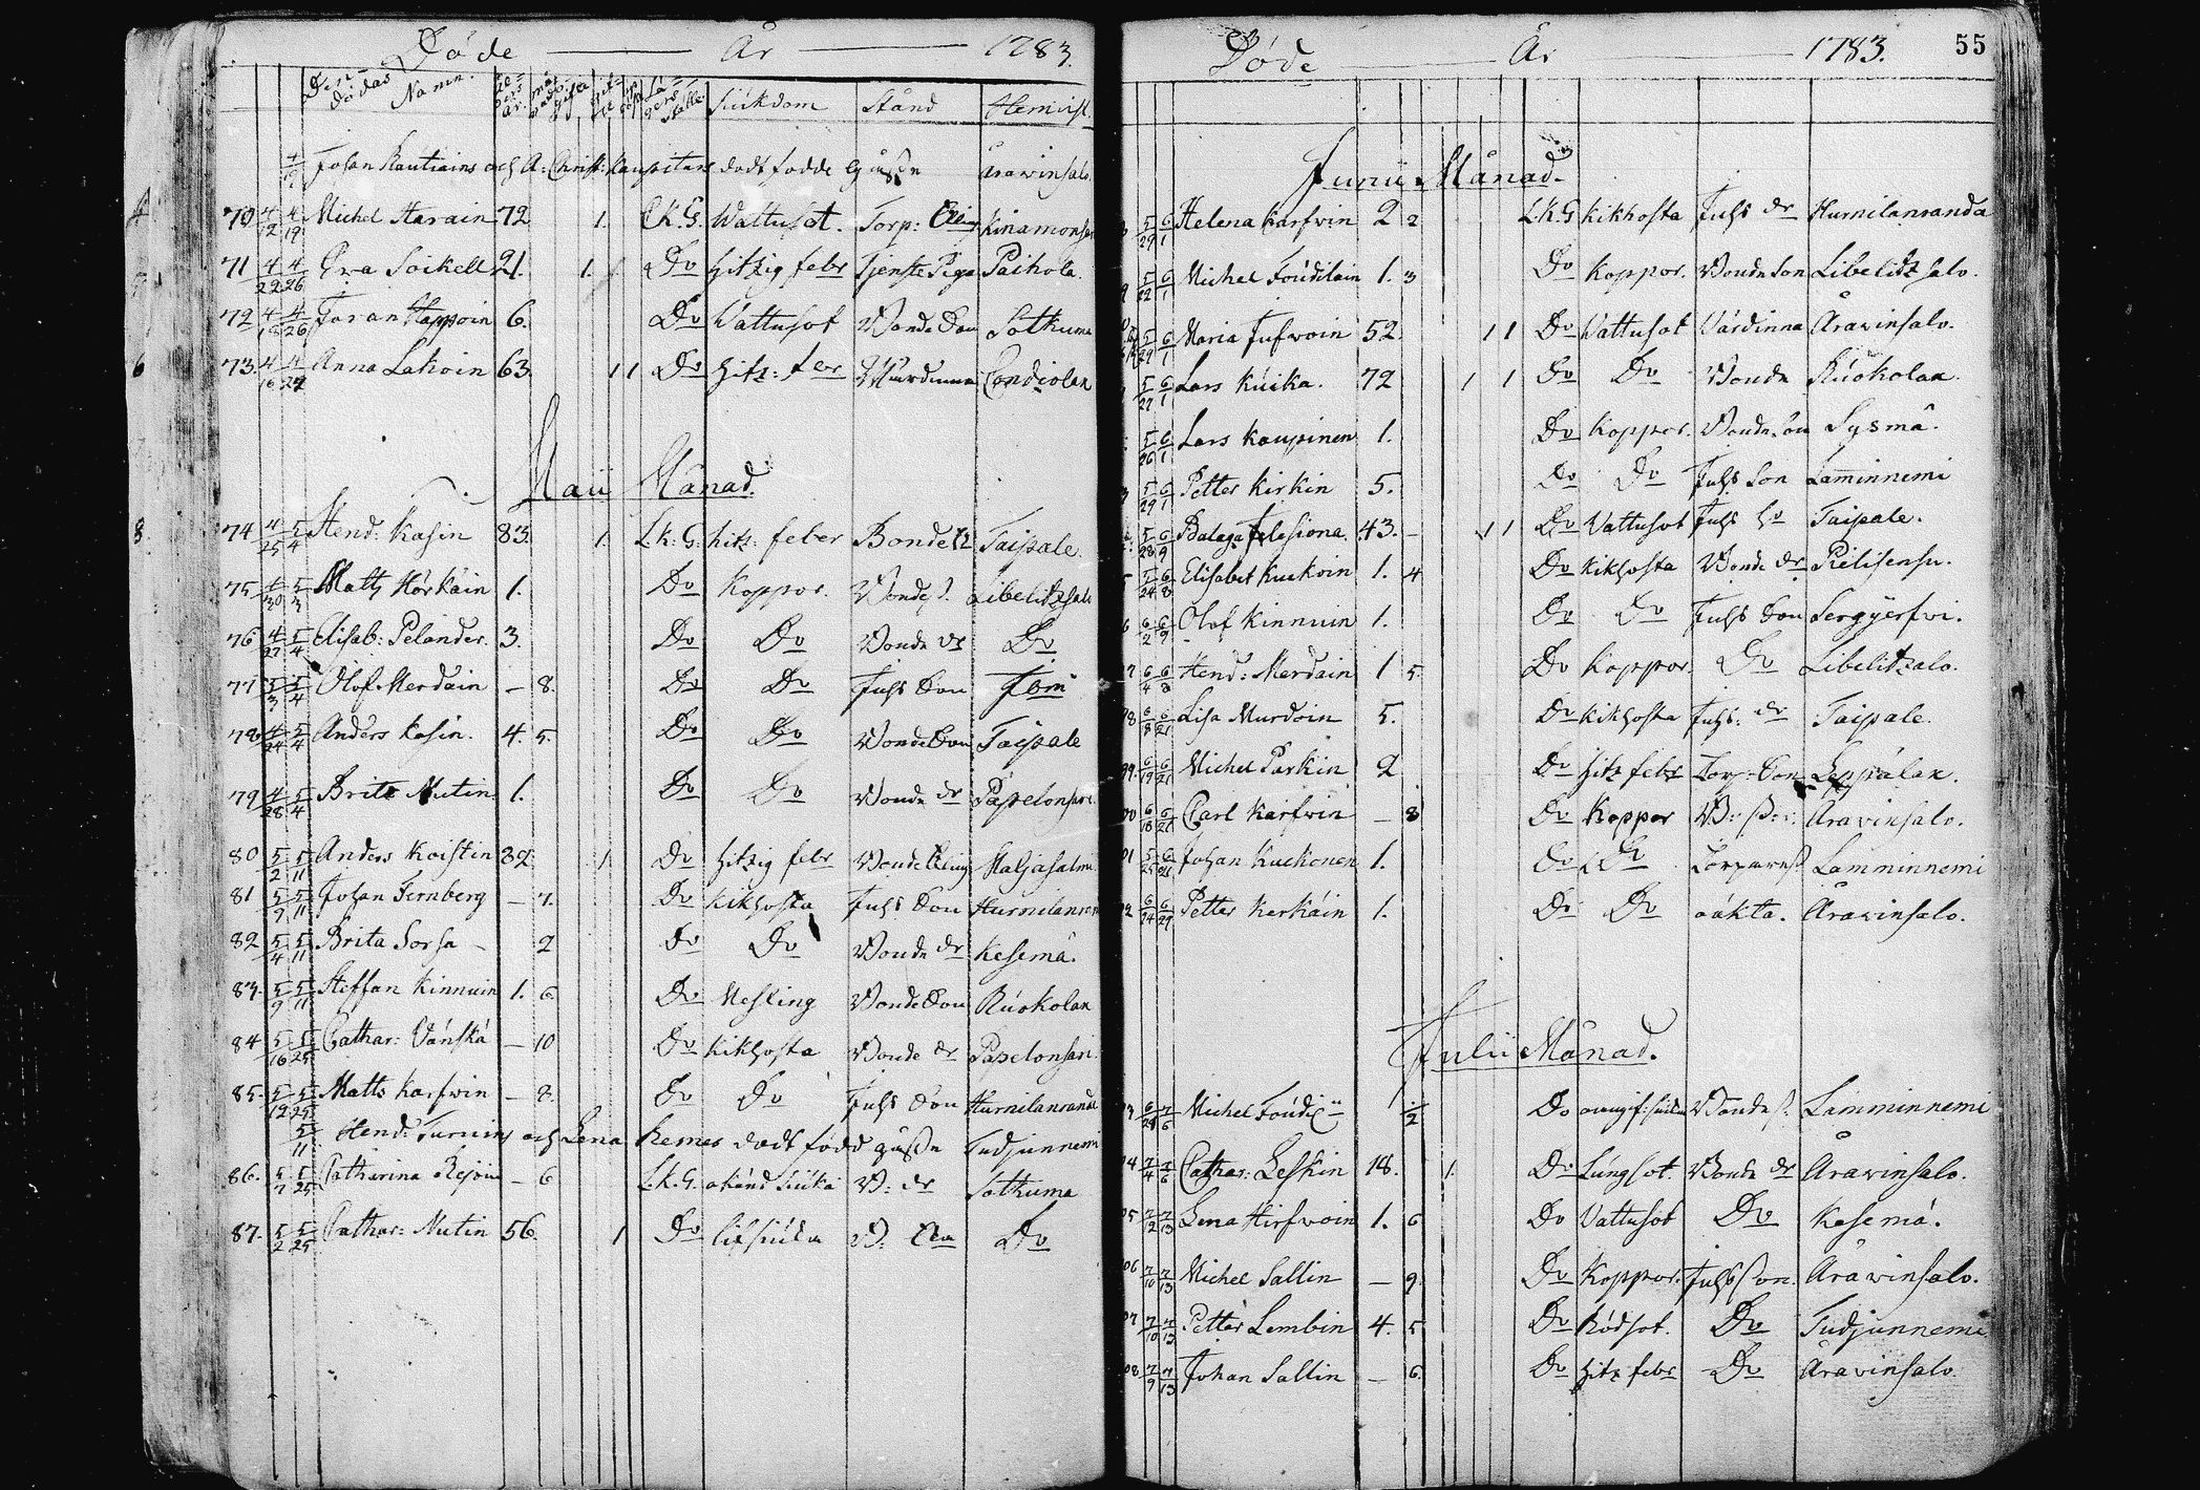 Döde År 1783.
De dödas Namn. Siukdom Stånd Hemvist.
Johan Rautiains och A: Christ: Kaupitars dödfödde gåsse Aravinsalo.
70 4/12 4/19 Michel Harain 72 1. L.K.G. Wattusot. Torp: Enkling Kinamonsa
71 4/22 4/26 Eva Soikell 21. 1. 1. Do hitzig febr Tjenste Piga Paihola.
72 4/18 4/26 Joran Happoin 6. Do Vattusot Bonde Son Sotkuma
73. 4/16 4/27 Anna Lakoin 63. 1 1 Do hitz: feer Värdinna Condiolax
Maii Månad.
74 4/25 5/4 Hend: Kasin 83. 1. L.K.G. hitz: feber Bonde Taipale.
75 4/30 5/3 Matts Hörkäin 1. Do Koppor. Bonde S. Libelitzsalo
76 4/27 5/4 Elisab: Pelander. 3. Do Do Bonde dr Do
77 5/3 5/4 Olof Merdain – 8. Do Do Juhs Son Jomi
78 4/24 5/4 Anders Kasin. 4. 5. Do Do Bonde Son Taipale
79 4/28 5/4 Brita Nutin 1. Do Do Bonde dr Papelonsari.
80 5/2 5/11 Anders Koistin 32 1. Do hitzig febr Bonde Enkling Maljasalmi
81 5/9 5/11 Johan Fernberg – 7. Do Kikhosta Juhs Son Hurnilanran
82 5/4 5/11 Brita Sorsa – 2 Do Do Bonde dr Kesemä.
83. 5/9 5/11 Steffan Kinnuin 1. 6. Do Nesling Bonde Son Ruokolax
84 5/16 5/25 Cathar: Vänskä – 10 Do Kikhosta Bonde dr Papelonsari.
85. 5/12 5/25 Matts Karfvin – 8. Do Do Juhs Son Hurnilanranda
5/11 Hend: Turuins och Lena Kemes dödfödd gåsse Tudjunnemi
86. 5/7 5/25 Catharina Rejoin – 6 L.K.G. okänd Siuka B: dr Sotkuma
87. 5/2 5/25 Cathar: Nutin 56. 1 Do lifsiuka B: Do
Döde År 1783. 55
Junii Månad.
5/29 6/1 Helena Karfvin 2 2 L.K.G Kikhosta Juhs dr Hurnilanranda
5/22 6/1 Michel Foudilain 1. 3 Do Koppor. Bonde Son Libelitzsalo.
5/29 6/1 Maria Jufvoin 52. 1 1 Do Vattusot Värdinna Aravinsalo.
5/27 6/1 Lars Kuika. 72 1 1 Do Do Bonde Ruokolax.
5/26 6/1 Lars Kaupinen 1. Do Koppor. Bonde Son Sysmä.
5/29 6/1 Petter Kirkin 5. Do Do Juhs Son Laminnemi
5/28 6/9 43. – 1 1 Do Vattusot Juhs Taipale.
5/24 6/8 Elisabet Kuckoin 1. 4 Do Kikhosta Bonde dr Pielisensu.
6/2 6/9 Olof Kinnuin 1. Do Do Juhs Son Sergyerfvi.
6/4 6/8 Hend: Merdain 1 5. Do Koppor. Do Libelitzsalo.
6/8 6/21 Lisa Murdoin 5. Do Kikhosta Juhs: dr Taipale.
6/19 6/21 Michel Parkin 2 Do hitz febr Torp: Son Leppälax.
6/18 6/21 Carl Karfvin – 8 Do Koppor Aravinsalo.
5/25 6/21 Johan Kuckonen 1. Do Do Lamminnemi
6/24 6/29 Petter Kerkäin 1. Do Do oäkta. Aravinsalo.
Julii Månad.
6/28 7/6 Michel 1/2 Do Bonde S. Lamminnemi
7/4 7/6 Cathar: Leskin 18. 1. Do Lungsot. Bonde dr Aravinsalo.
7/2 7/13 Lena Hirfvoin 1. 6 Do Vattusot Do Kesemä.
7/10 7/13 Michel Sallin – 9. Do Koppor. Juhs Son. Aravinsalo.
7/10 7/13 Petter Lembin 4. 5 Do Rödsot. Do Tudjunnemi
7/9 7/13 Johan Sallin – 6. Do hitz febr Do Aravinsalo